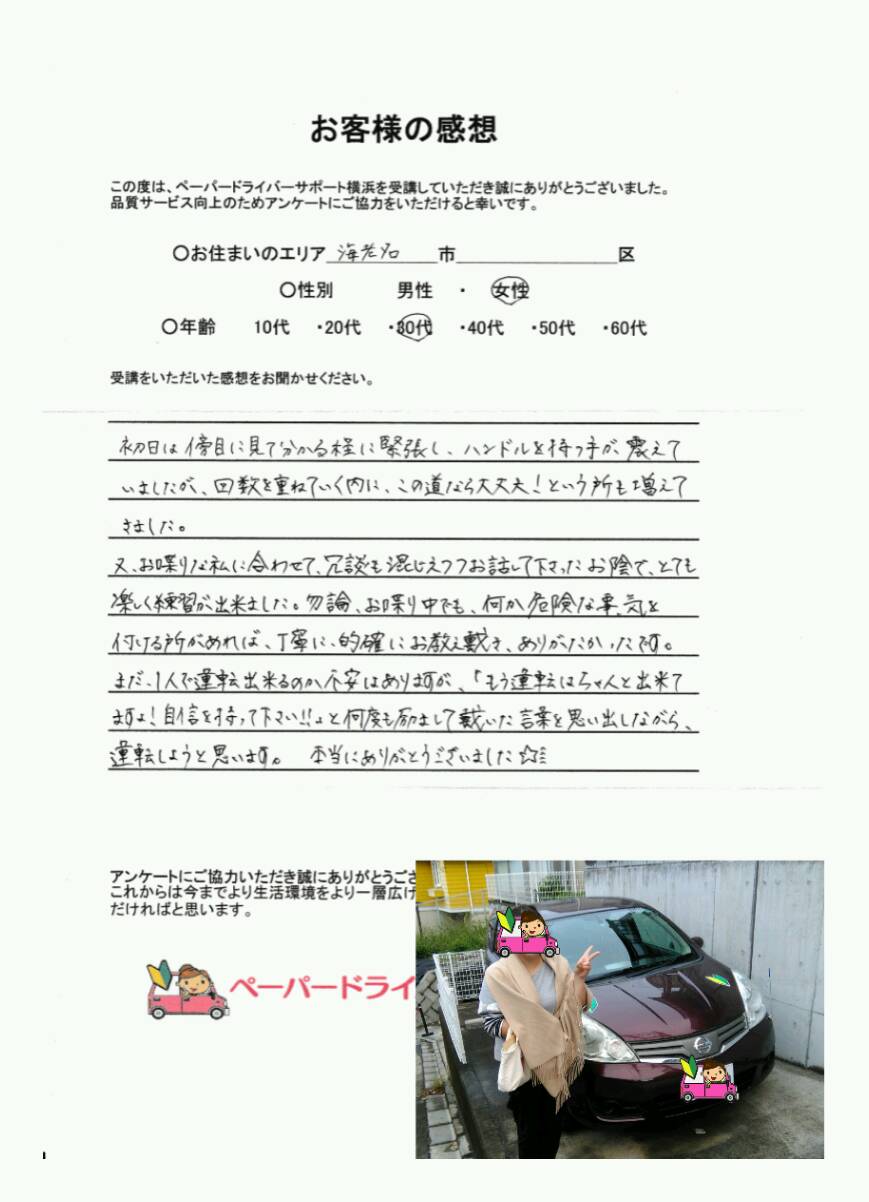 お客様の感想
この度は、ペーパードライバーサポート横浜を受講していただき誠にありがとうございました。
品質サービス向上のためアンケートにご協力をいただけると幸いです。
〇お住まいのエリア 海老名 市 区
〇性別 男性 ・ 女性
〇年齢 10代 ・20代 ・30代 ・40代 ・50代 ・60代
受講をいただいた感想をお聞かせください。
初日は傍目に見て分かる程に緊張し、ハンドルを持つ手が震えて
いましたが、回数を重ねていく内に、この道なら大丈夫！という所も増えて
きました。
又、お喋りな私に合わせて、冗談も混じえつつお話して下さったお陰で、とても
楽しく練習が出来ました。勿論、お喋り中でも、何か危険な事、気を
付ける所があれば、丁寧に、的確にお教え戴き、ありがたかったです。
まだ、1人で運転出来るのか不安はありますが、「もう運転はちゃんと出来て
ますよ！自信を持って下さい!!」と何度も励まして戴いた言葉を思い出しながら、
運転しようと思います。 本当にありがとうございました☆
アンケートにご協力いただき誠にありがとうござ
これからは今までより生活環境をより一層広げ
だければと思います。
ペーパードライ